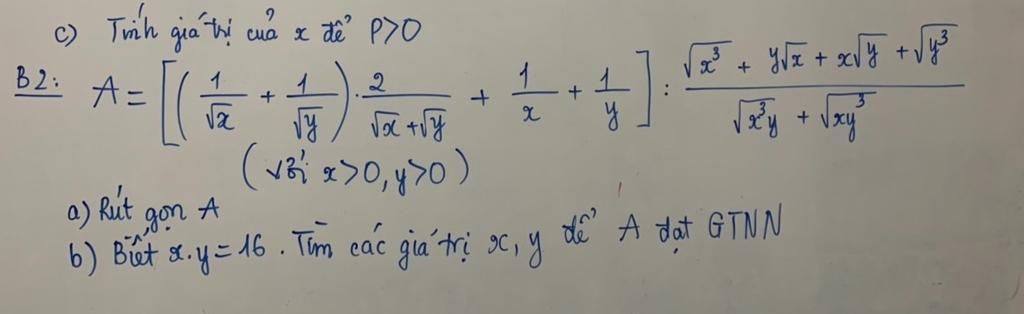 c) Tính giá trị của x để P>0
B2: A = [(1/√x + 1/√y) . 2/(√x + √y) + 1/x + 1/y] : (√x³ + y√x + x√y + √y³)/(√x³y + √xy³)
(với x>0, y>0)
a) Rút gọn A
b) Biết x.y = 16. Tìm các giá trị x, y để A đạt GTNN